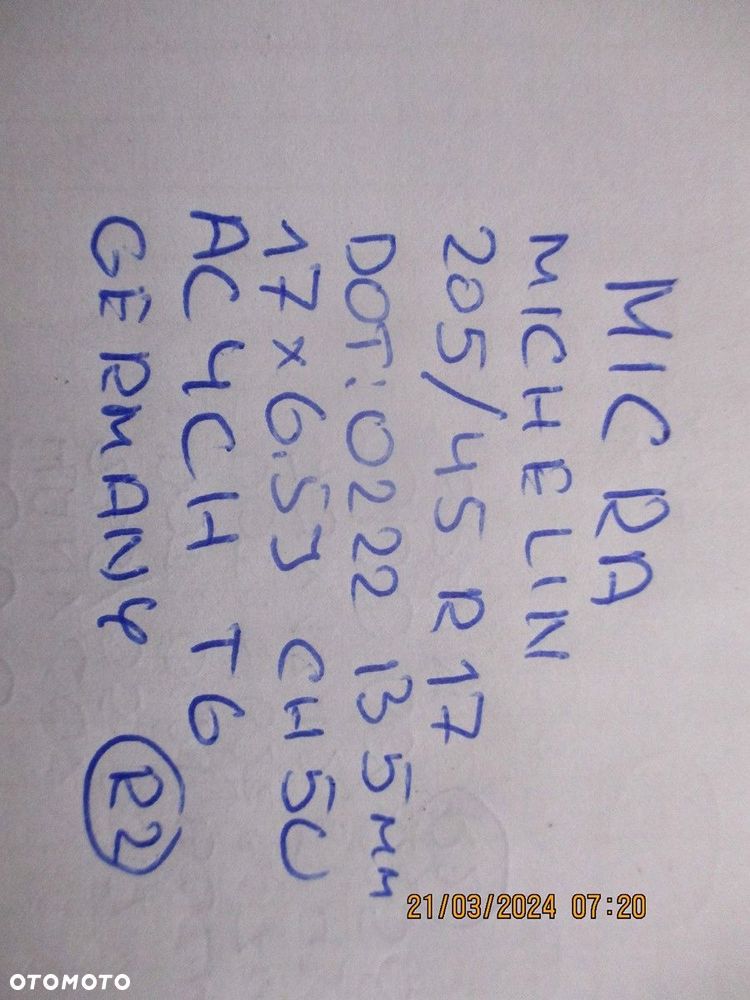 MICRA
MICHELIN
205/45 R17
DOT:0222 135mm
17x6.5J CH5U
AC4CH T6
GERMANY R2
21/03/2024 07:20
OTOMOTO